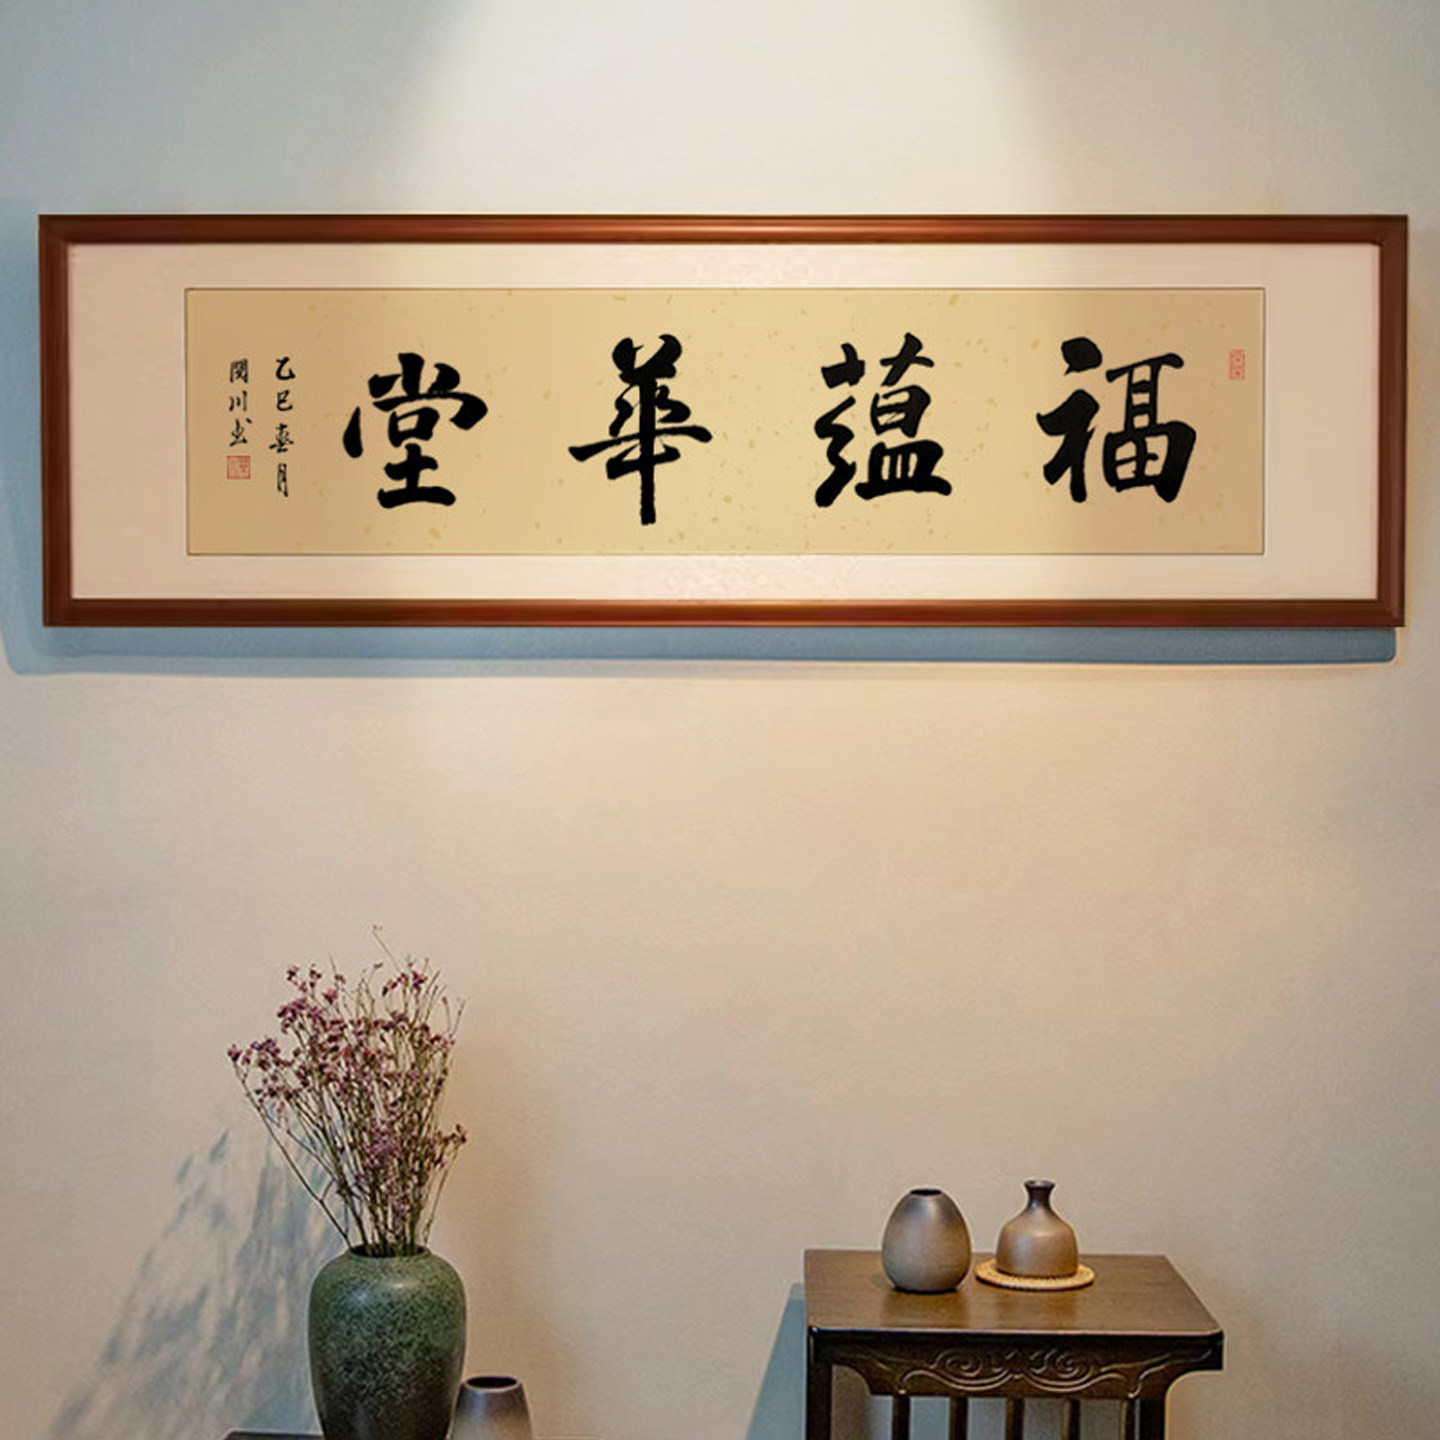 福蘊華堂
乙巳春月
閔川书